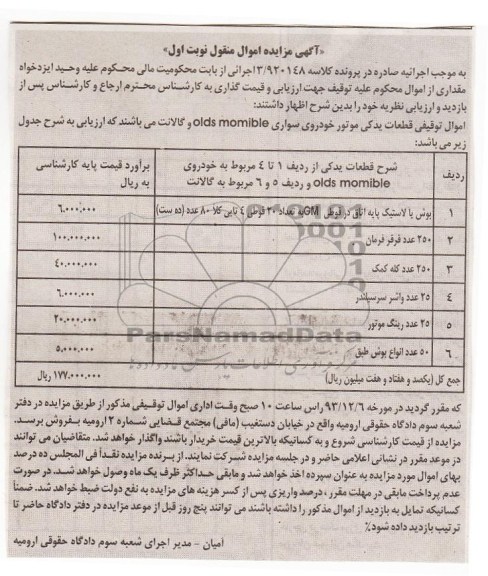 «آگهی مزایده اموال منقول نوبت اول»
به موجب اجرائیه صادره در پرونده کلاسه ۳/۹۲۰۱۴۸ اجرائی از بابت محکومیت مالی محکوم علیه وحید ایزدخواه
مقداری از اموال محکوم علیه توقیف جهت ارزیابی و قیمت گذاری به کارشناس محترم ارجاع و کارشناس پس از
بازدید و ارزیابی نظریه خود را بدین شرح اظهار داشتند:
اموال توقیفی قطعات یدکی موتور خودروی سواری olds momible و گالانت می باشند که ارزیابی به شرح جدول
زیر می باشد:
ردیف شرح قطعات یدکی از ردیف ۱ تا ۴ مربوط به خودروی olds momible و ردیف ۵ و ۶ مربوط به گالانت برآورد قیمت پایه کارشناسی به ریال
۱ پوش یا لاستیک پایه اتاق در قوطی GM به تعداد ۲۰ قوطی ۴ تایی کلاً ۸۰ عدد (ده ست) ۶.۰۰۰.۰۰۰
۲ ۲۵۰ عدد قرقر فرمان ۱۰۰.۰۰۰.۰۰۰
۳ ۲۵۰ عدد کله کمک ۴۰.۰۰۰.۰۰۰
۴ ۲۵ عدد واشر سرسیلندر ۶.۰۰۰.۰۰۰
۵ ۲۵ عدد رینگ موتور ۲۰.۰۰۰.۰۰۰
۶ ۵۰ عدد انواع پوش طبق ۵.۰۰۰.۰۰۰
جمع کل (یکصد و هفتاد و هفت میلیون ریال) ۱۷۷.۰۰۰.۰۰۰ ریال
که مقرر گردید در مورخه ۹۳/۱۲/۶ راس ساعت ۱۰ صبح وقت اداری اموال توقیفی مذکور از طریق مزایده در دفتر
شعبه سوم دادگاه حقوقی ارومیه واقع در خیابان دستغیب (مافی) مجتمع قضایی شماره ۲ ارومیه بفروش برسد.
مزایده از قیمت کارشناسی شروع و به کسانیکه بالاترین قیمت خریدار باشند واگذار خواهد شد. متقاضیان می توانند
در موعد مقرر در نشانی اعلامی حاضر و در جلسه مزایده شرکت نمایند. از برنده مزایده نقداً فی المجلس ده درصد
بهای اموال مورد مزایده به عنوان سپرده اخذ خواهد شد و مابقی حداکثر ظرف یک ماه وصول خواهد شد. در صورت
عدم پرداخت مابقی در مهلت مقرر، درصد واریزی پس از کسر هزینه های مزایده به نفع دولت ضبط خواهد شد. ضمناً
کسانیکه تمایل به بازدید از اموال مذکور را داشته باشند می توانند پنج روز قبل از موعد مزایده در دفتر دادگاه حاضر تا
ترتیب بازدید داده شود٪
امیان - مدیر اجرای شعبه سوم دادگاه حقوقی ارومیه
ParsNamadData